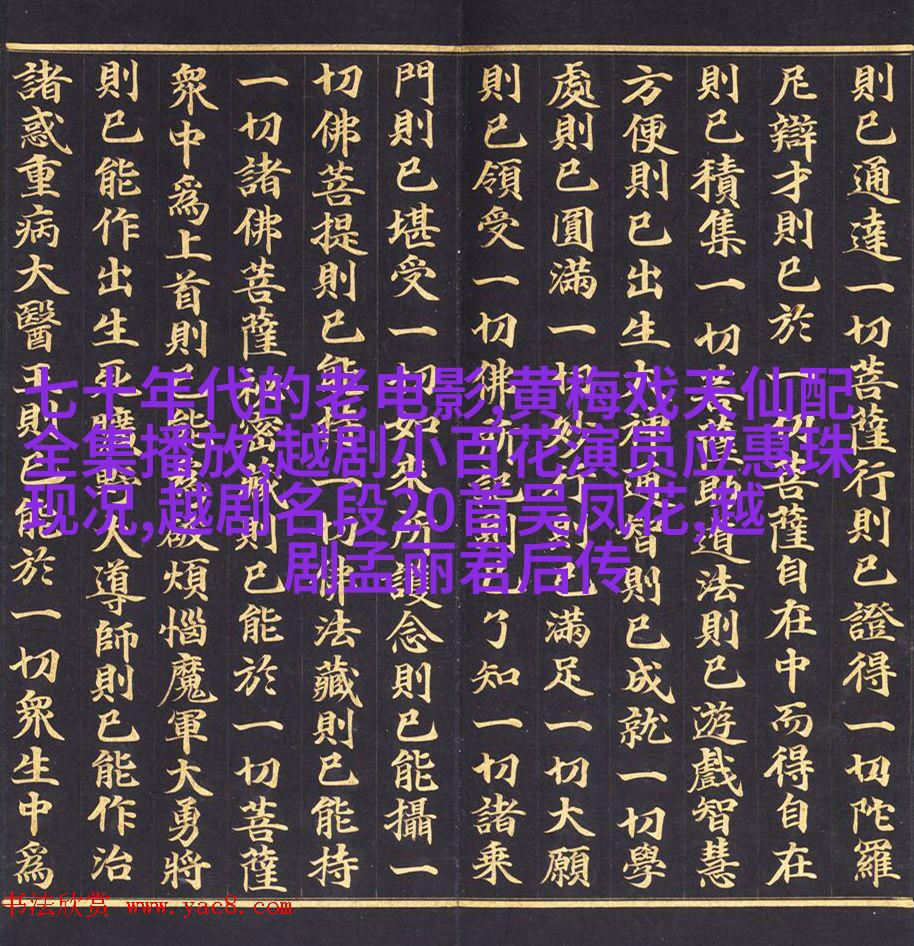 則已通達一切菩薩行則已證得一切陀羅
尼辯才則已於一切菩薩自在中而得自在
則已積集一切菩薩助道法則已遊戲智慧
方便則已出生大神通智則已成就一切學
處則已圓滿一切妙行則已滿足一切大願
則已領受一切佛所記則已了知一切諸乘
門則已堪受一切如來所護念則已能攝一
切佛菩提則已能持一切佛法藏則已能持
一切諸佛菩薩祕密藏則已能於一切菩薩
衆中爲上首則已能爲破煩惱魔軍大勇將
則已能作出生死曠野大導師則已能作治
諸惑重病大醫王則已能於一切衆生中爲
七十年代的老电影,黄梅戏天仙配
全集播放,越剧小百花演员应惠珠
现况,越剧名段20首吴凤花,越
剧孟丽君后传
书法欣赏 www.yac8.com